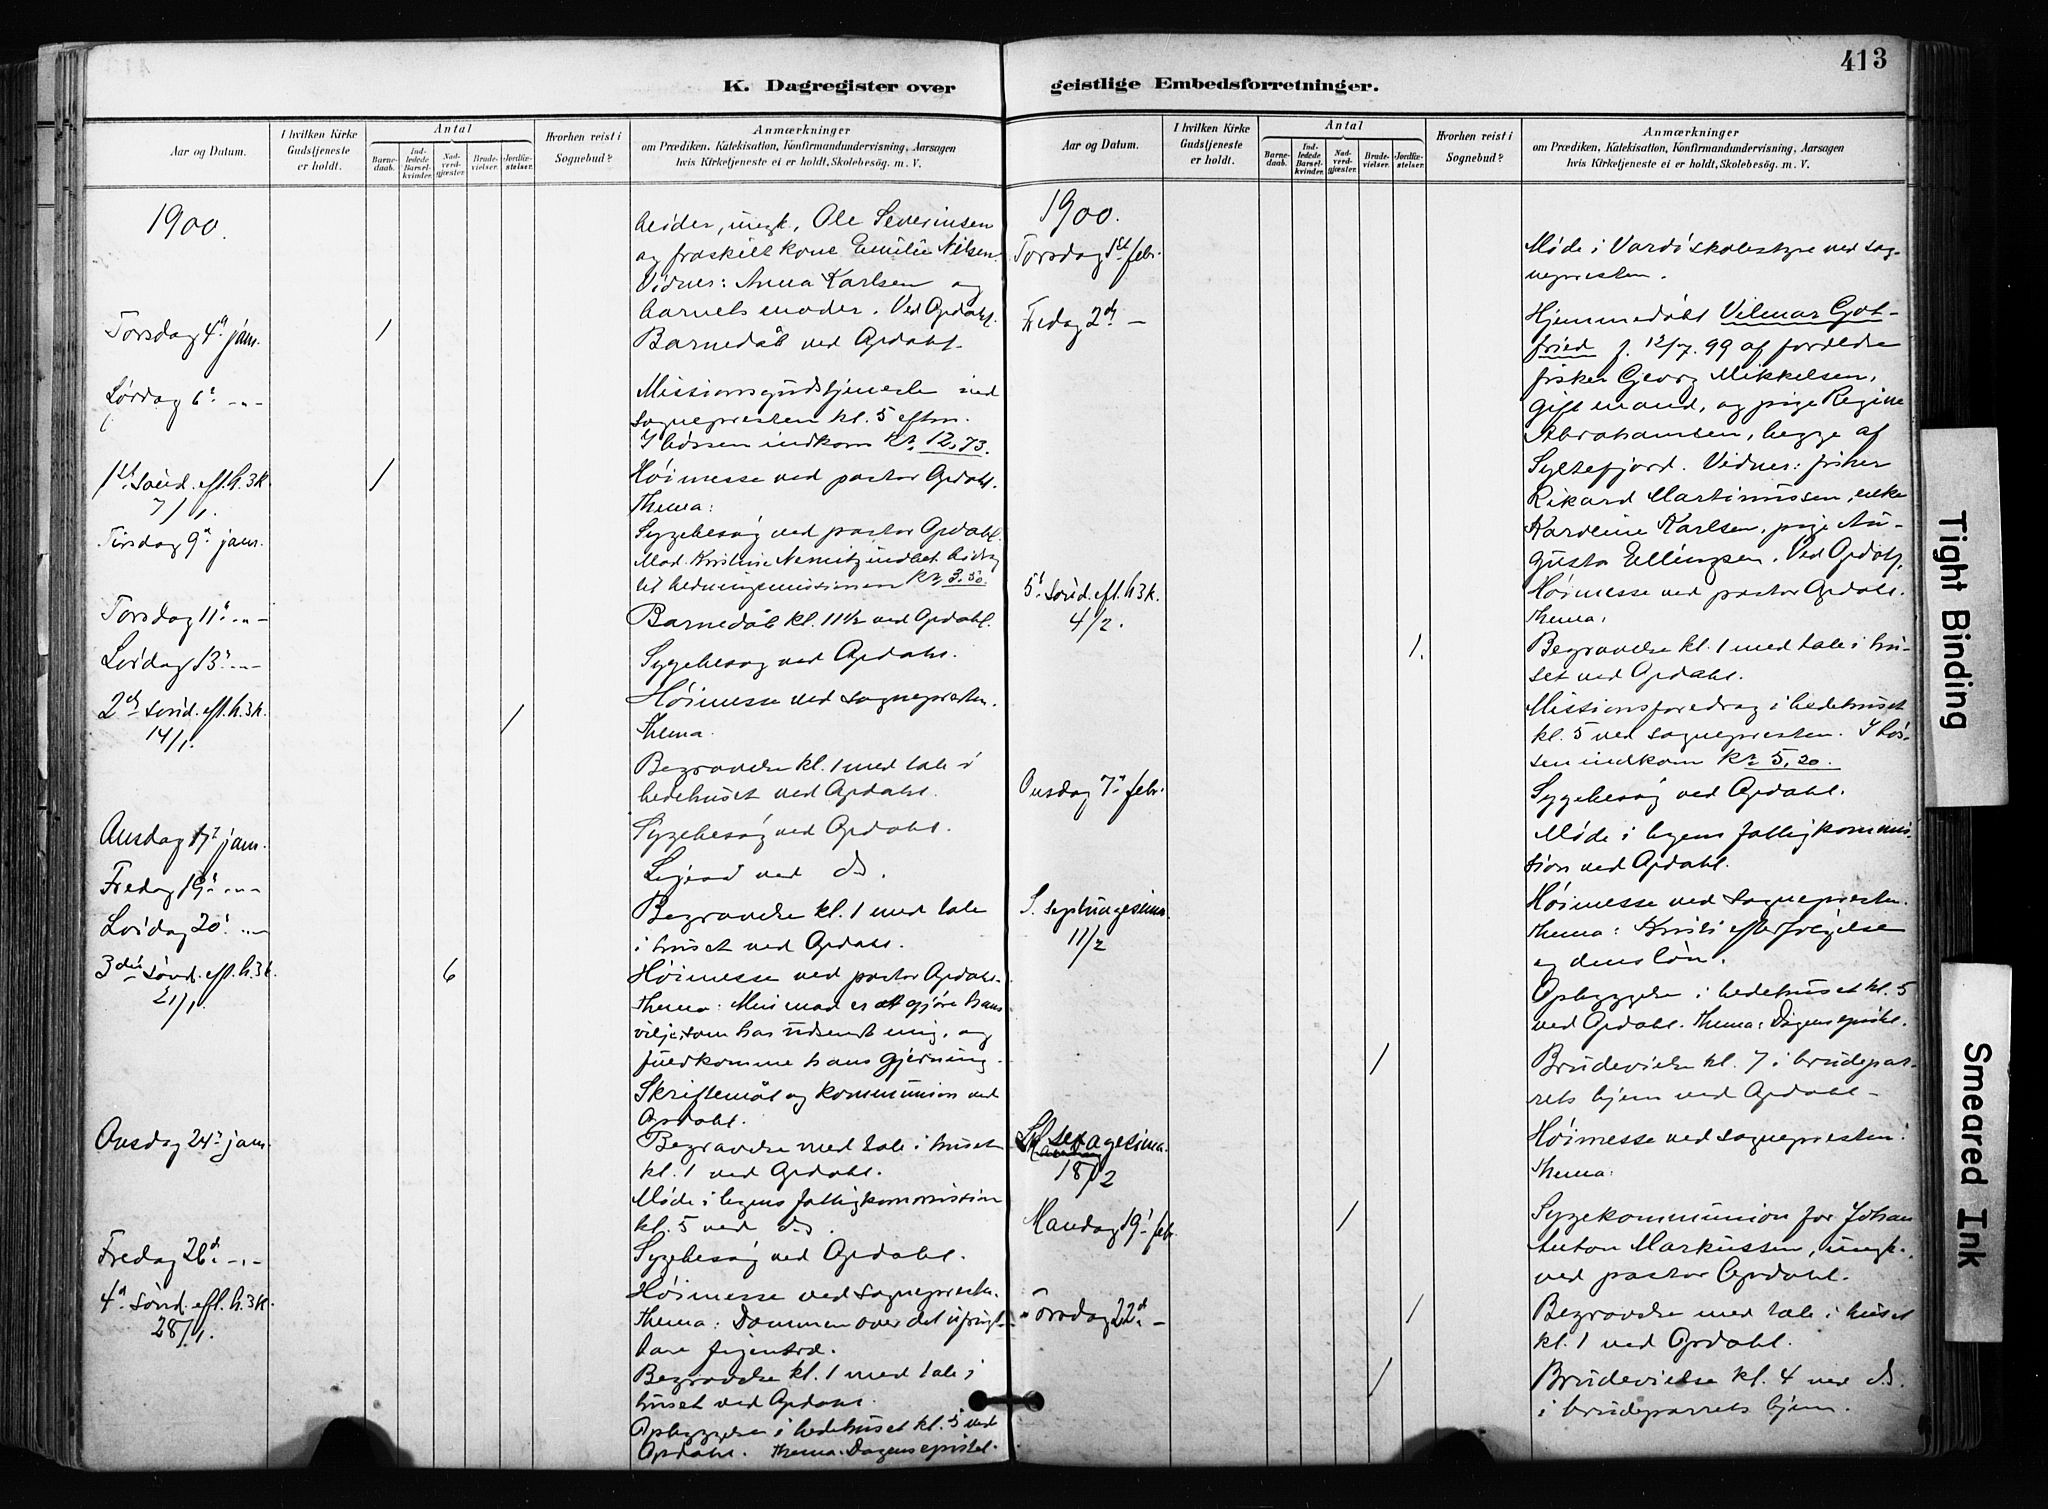 413
K. Dagregister over
geistlige Embedsforretninger.
Aar og Datum.
I hvilken Kirke Gudstjeneste er holdt.
Antal
Barnedaab.
Indledede Barselkvinder.
Nadverdgjæster.
Brudevielser.
Jordfæstelser.
Hvorhen reist i Sognebud?
Anmærkninger
om Prædiken, Katekisation, Konfirmandundervisning, Aarsagen
hvis Kirketjeneste ei er holdt, Skolebesög. m. V.
1900.
beider, ungk. Ole Severinsen
og fraskilt kone Emilie Nilsen.
Vidner: Anna Karlsen og
barnets moder. Ved Opdahl.
Torsdag 4d janr. 1 Barnedåb ved Opdahl.
Lørdag 6d -"- Missionsgudstjeneste ved
sognepresten kl. 5 eftm.
I bøssen indkom Kr. 12,73.
1st sønd. eft. h.3k. 1 Høimesse ved pastor Opdahl.
7/1. Thema:
Tirsdag 9d janr. Sygebesøg ved pastor Opdahl.
Mad. Kristine Nemitz indbet. bidrag
til hedningemissionen Kr. 3,50.
Torsdag 11d -"- Barnedåb kl. 11½ ved Opdahl.
Lørdag 13d -"- Sygebesøg ved Opdahl.
2den sønd. eft. h.3k. 1 Høimesse ved sognepresten.
14/1. Thema.
Begravelse kl. 1 med tale i
bedehuset ved Opdahl.
Onsdag 17d janr. Sygebesøg ved Opdahl.
Fredag 19d -"- ved do.
Lørdag 20d -"- Begravelse kl. 1 med tale
i huset ved Opdahl.
3die sønd. eft. h.3k. 6 Høimesse ved pastor Opdahl.
21/1. Thema: Min mad er at gjøre hans
vilje, som har udsendt mig, og
fuldkomme hans gjerning.
Skriftemål og kommunion ved
Opdahl.
Onsdag 24d janr. Begravelse med tale i huset
kl. 1 ved Opdahl.
Møde i byens fattigkommission
kl. 5 ved do.
Fredag 26d -"- Sygebesøg ved Opdahl.
4d sønd. eft. h.3k. Høimesse ved sognepresten.
28/1. Thema: Dommen over det ufrugt-
bare figentræ.
Begravelse kl. 1 med tale i
huset ved Opdahl.
Opbyggelse i bedehuset kl. 5 ved
Opdahl. Thema: Dagens epistel.
Aar og Datum.
I hvilken Kirke Gudstjeneste er holdt.
Antal
Barnedaab.
Indledede Barselkvinder.
Nadverdgjæster.
Brudevielser.
Jordfæstelser.
Hvorhen reist i Sognebud?
Anmærkninger
om Prædiken, Katekisation, Konfirmandundervisning, Aarsagen
hvis Kirketjeneste ei er holdt, Skolebesög. m. V.
1900.
Torsdag 1st febr. Møde i Vardø skolestyre ved sog-
nepresten.
Fredag 2den - Hjemmedøbt Vilmar Got-
fried f. 12/7. 99 af forældre
fisker Georg Mikkelsen,
gift mand, og pige Regine
Abrahamsen, begge af
Syltefjord. Vidner: fisker
Rikard Martinussen, enke
Karoline Karlsen, pige Au-
gusta Ellingsen. Ved Opdahl.
5d sønd. eft. h3k. Høimesse ved pastor Opdahl.
4/2. Thema:
1. Begravelse kl. 1 med tale i hu-
set ved Opdahl.
Missionsforedrag i bedehuset
kl. 5 ved sognepresten. I bøs-
sen indkom Kr. 5,20.
Onsdag 7d febr. Sygebesøg ved Opdahl.
Møde i byens fattigkommis-
sion ved Opdahl.
S. septuagesima. Høimesse ved sognepresten.
11/2 Thema: Kristi efterfølgelse
og dens løn.
Opbyggelse i bedehuset kl. 5
ved Opdahl. Thema: Dagens epistel.
1 Brudevielse kl. 7 i brudepar-
rets hjem ved Opdahl -
sexagesima. Høimesse ved sognepresten.
18/2 Thema:
Mandag 19d febr. 1 Sygekommunion for Johan
Anton Markussen, ungk.,
ved pastor Opdahl.
Torsdag 22d - 1 Begravelse med tale i huset
kl. 1 ved Opdahl.
1 Brudevielse kl. 4 ved do.
i brudeparrets hjem.
Tight Binding
Smeared Ink